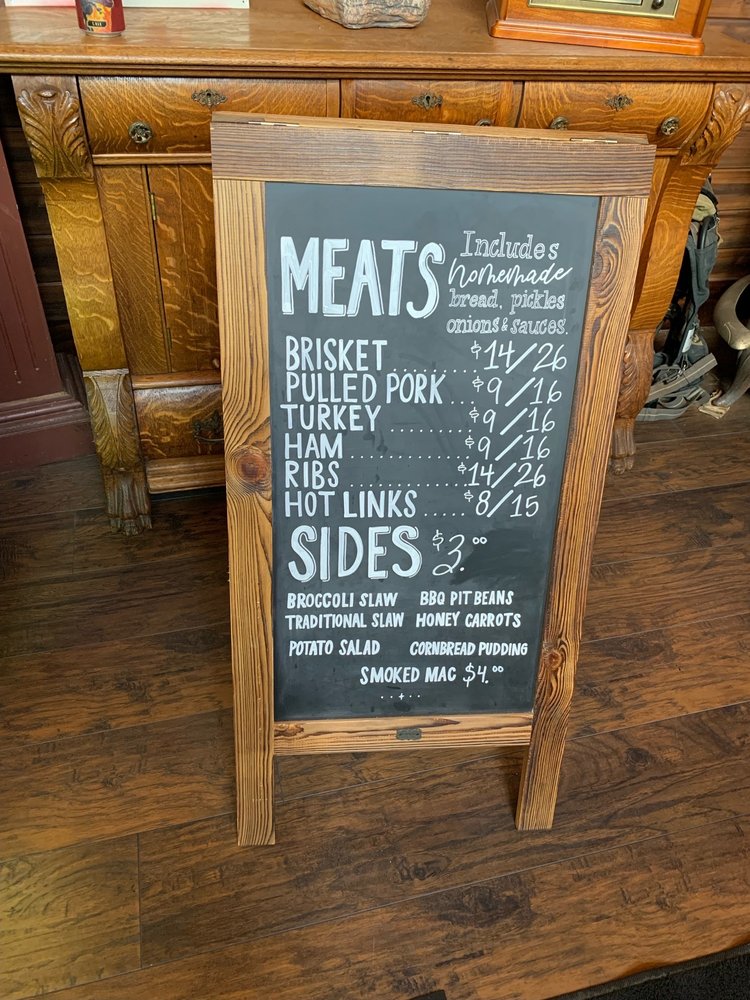 MEATS
Includes
homemade
bread, pickles
onions & sauces.
BRISKET ........ $14/26
PULLED PORK ... $9/16
TURKEY ............ $9/16
HAM ............... $9/16
RIBS ............... $14/26
HOT LINKS ..... $8/15
SIDES $3.00
BROCCOLI SLAW BBQ PIT BEANS
TRADITIONAL SLAW HONEY CARROTS
POTATO SALAD CORNBREAD PUDDING
SMOKED MAC $4.00